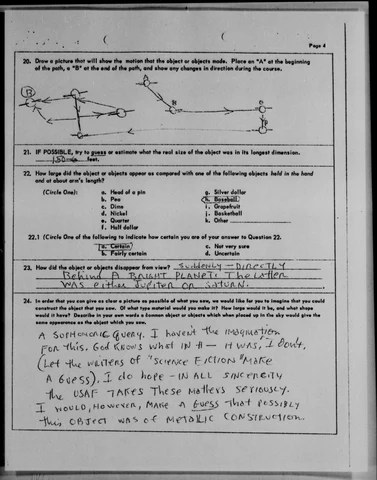 Page 4
20. Draw a picture that will show the motion that the object or objects made. Place an "A" at the beginning
of the path, a "B" at the end of the path, and show any changes in direction during the course.
B
A
B
C
21. IF POSSIBLE, try to guess or estimate what the real size of the object was in its longest dimension.
feet.
22. How large did the object or objects appear as compared with one of the following objects held in the hand
and at about arm's length?
(Circle One): a. Head of a pin g. Silver dollar
b. Pea h. Baseball
c. Dime i. Grapefruit
d. Nickel j. Basketball
e. Quarter k. Other
f. Half dollar
22.1 (Circle One of the following to indicate how certain you are of your answer to Question 22.
a. Certain c. Not very sure
b. Fairly certain d. Uncertain
23. How did the object or objects disappear from view? Suddenly - DIRECTLY
BEHIND A BRIGHT PLANET: The Latter
WAS either Jupiter or SATURN.
24. In order that you can give as clear a picture as possible of what you saw, we would like for you to imagine that you could
construct the object that you saw. Of what type material would you make it? How large would it be, and what shape
would it have? Describe in your own words a common object or objects which when placed up in the sky would give the
same appearance as the object which you saw.
A SOPHOMORIC QUERY. I haven't the imagination
FOR this. GOD KNOWS WHAT IT WAS, I Don't.
(Let the writers of "SCIENCE FICTION" MAKE
A GUESS). I do hope - IN ALL SINCERITY
the USAF TAKES These MATTERS SERIOUSLY.
I WOULD, HOWEVER, MAKE A GUESS THAT POSSIBLY
this OBJECT WAS OF METALLIC CONSTRUCTION.